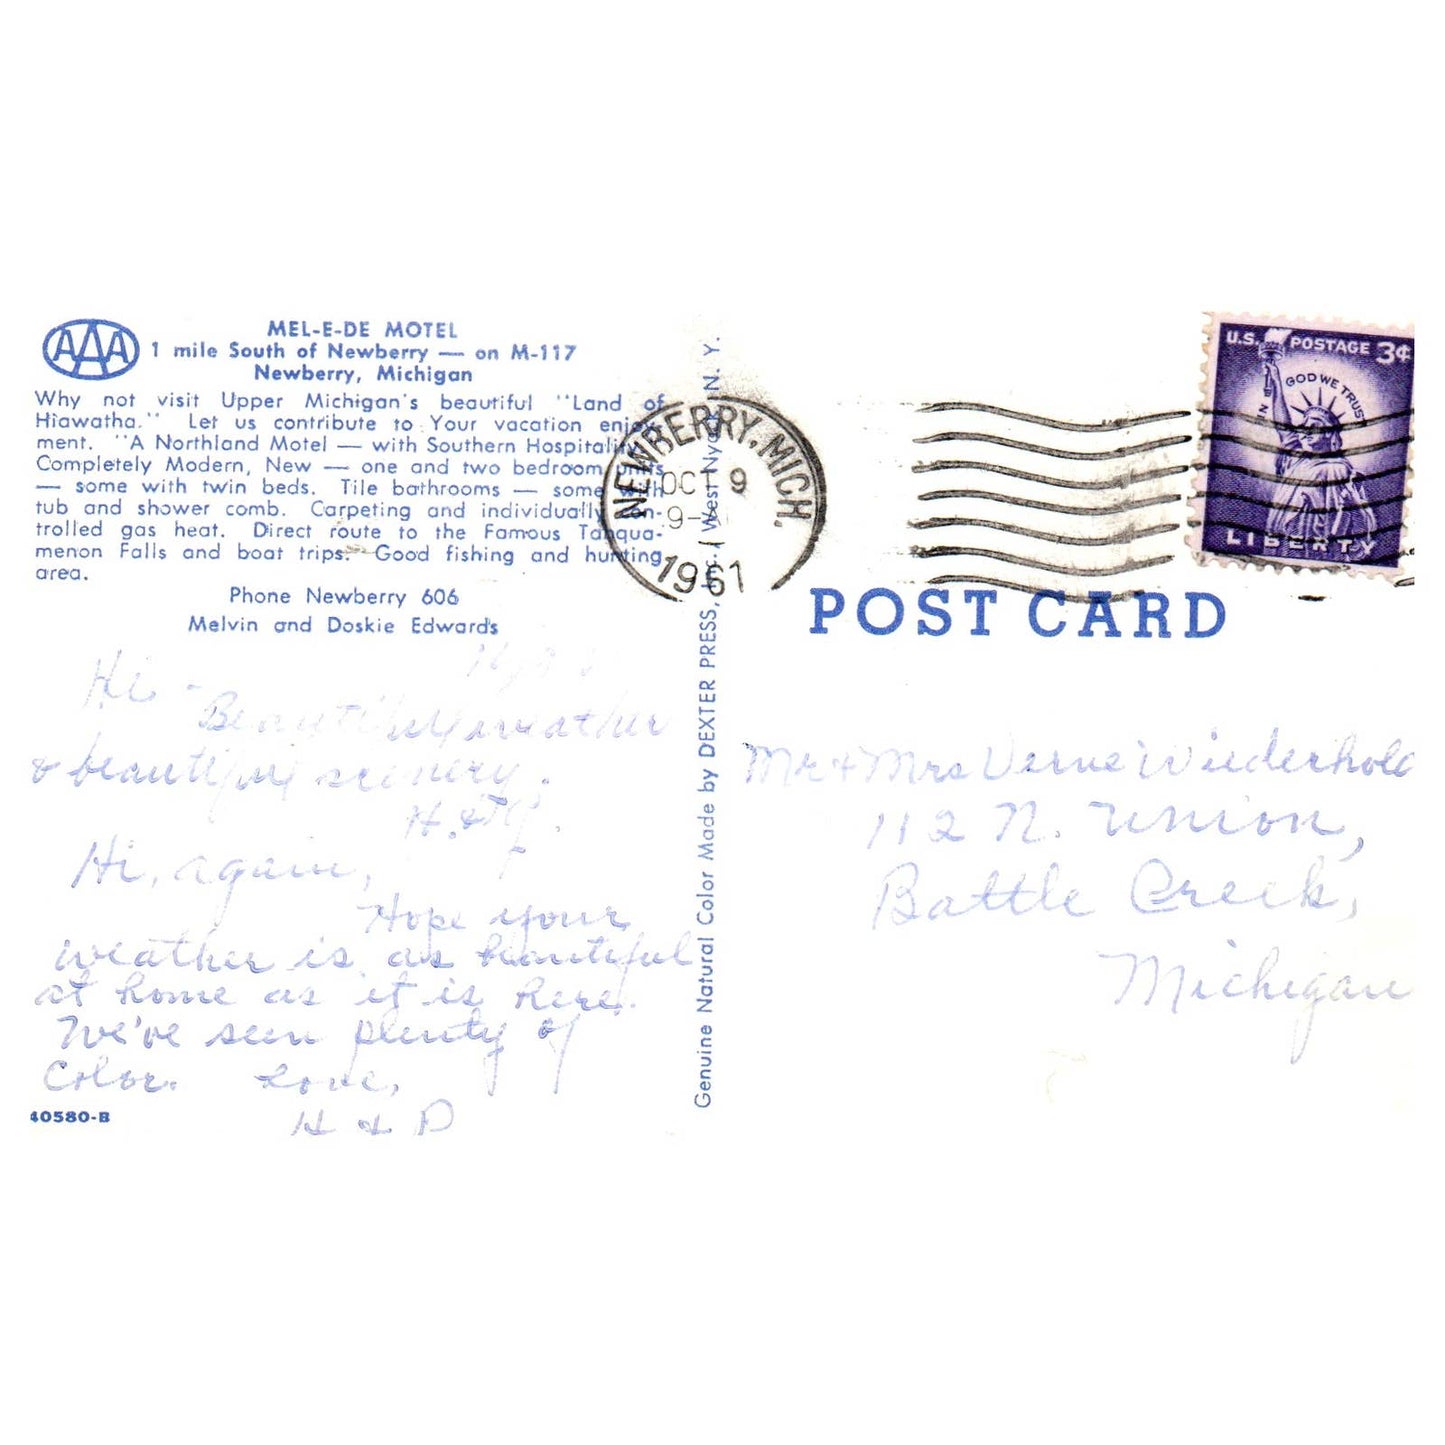 AAA
MEL-E-DE MOTEL
1 mile South of Newberry — on M-117
Newberry, Michigan
Why not visit Upper Michigan's beautiful "Land of
Hiawatha." Let us contribute to Your vacation enjoy-
ment. "A Northland Motel — with Southern Hospitality
Completely Modern, New — one and two bedroom units
— some with twin beds. Tile bathrooms — some with
tub and shower comb. Carpeting and individually con-
trolled gas heat. Direct route to the Famous Tahqua-
menon Falls and boat trips. Good fishing and hunting
area.
Phone Newberry 606
Melvin and Doskie Edwards
Hi -
Beautiful weather
& beautiful scenery.
H. &
Hi, again,
Hope your
weather is as beautiful
at home as it is here.
We've seen plenty of
Color. Love,
H & D
40580-B
Genuine Natural Color Made by DEXTER PRESS, Inc., West Nyack, N. Y.
NEWBERRY, MICH.
OCT 9
9-
1961
U.S. POSTAGE 3¢
IN GOD WE TRUST
LIBERTY
POST CARD
Mr & Mrs Verne Wiederhold
112 N. Union,
Battle Creek,
Michigan